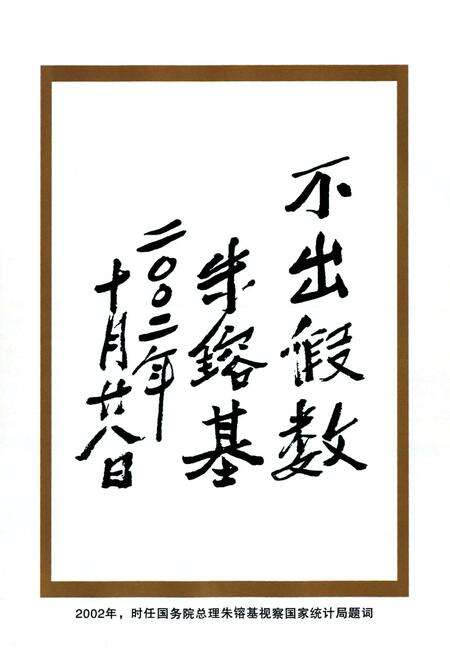 不出假数
朱镕基
二〇〇二年
十月廿八日
2002年，时任国务院总理朱镕基视察国家统计局题词